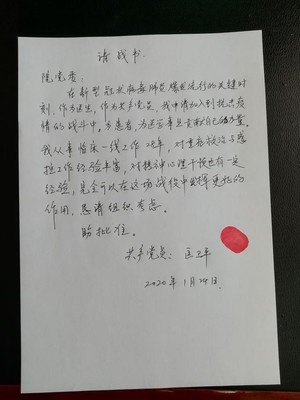 请战书
院党委：
在新型冠状病毒肺炎爆发流行的关键时
刻，作为医生，作为共产党员，我申请加入到抗击疫
情的战斗中，为患者，为医学事业贡献自己的力量。
我从事临床一线工作 年，对重症救治
工作经验丰富，对精神心理干预也有一定
经验，完全可以在这场战役中发挥更好的
作用，恳请组织考虑。
盼批准。
共产党员：匡卫平
2020年1月24日